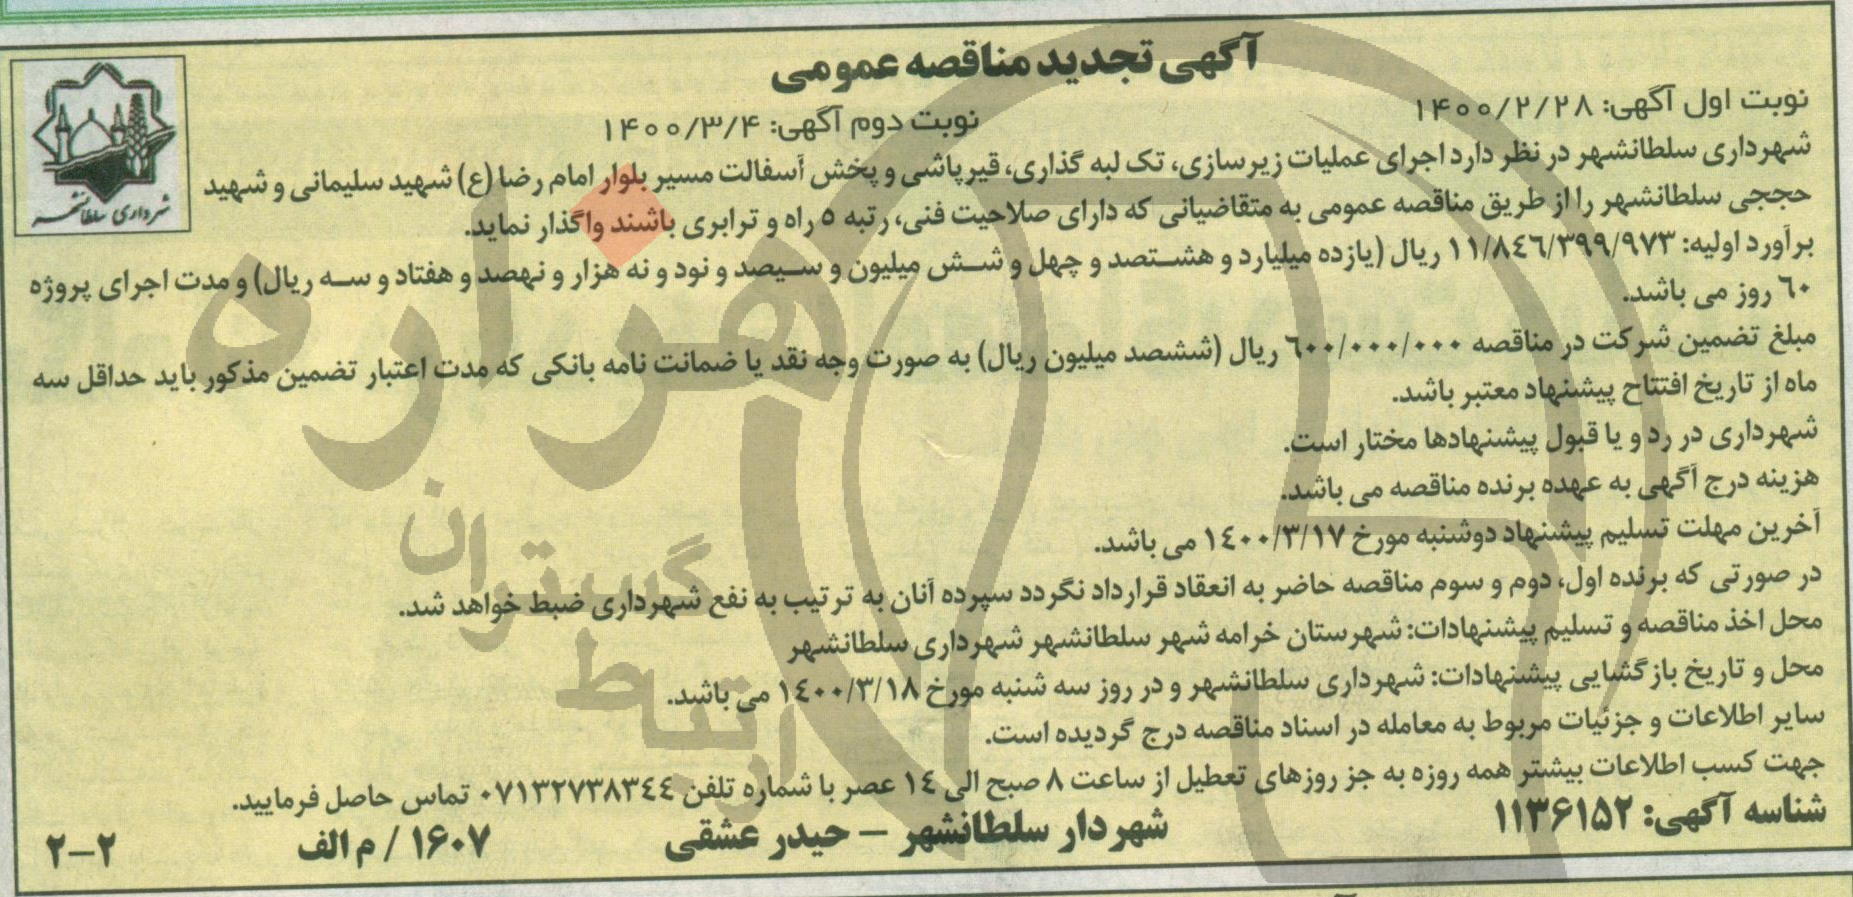 آگهی تجدید مناقصه عمومی
نوبت اول آگهی: ۱۴۰۰/۲/۲۸
نوبت دوم آگهی: ۱۴۰۰/۳/۴
شهرداری سلطانشهر
شهرداری سلطانشهر در نظر دارد اجرای عملیات زیرسازی، تک لبه گذاری، قیرپاشی و پخش آسفالت مسیر بلوار امام رضا (ع) شهید سلیمانی و شهید
حججی سلطانشهر را از طریق مناقصه عمومی به متقاضیانی که دارای صلاحیت فنی، رتبه ٥ راه و ترابری باشند واگذار نماید.
برآورد اولیه: ۱۱/۸٤٦/۳۹۹/۹۷۳ ریال (یازده میلیارد و هشتصد و چهل و شش میلیون و سیصد و نود و نه هزار و نهصد و هفتاد و سه ریال) و مدت اجرای پروژه
٦۰ روز می باشد.
مبلغ تضمین شرکت در مناقصه ٦۰۰/۰۰۰/۰۰۰ ریال (ششصد میلیون ریال) به صورت وجه نقد یا ضمانت نامه بانکی که مدت اعتبار تضمین مذکور باید حداقل سه
ماه از تاریخ افتتاح پیشنهاد معتبر باشد.
شهرداری در رد و یا قبول پیشنهادها مختار است.
هزینه درج آگهی به عهده برنده مناقصه می باشد.
آخرین مهلت تسلیم پیشنهاد دوشنبه مورخ ۱٤۰۰/۳/۱۷ می باشد.
در صورتی که برنده اول، دوم و سوم مناقصه حاضر به انعقاد قرارداد نگردد سپرده آنان به ترتیب به نفع شهرداری ضبط خواهد شد.
محل اخذ مناقصه و تسلیم پیشنهادات: شهرستان خرامه شهر سلطانشهر شهرداری سلطانشهر
محل و تاریخ بازگشایی پیشنهادات: شهرداری سلطانشهر و در روز سه شنبه مورخ ۱٤۰۰/۳/۱۸ می باشد.
سایر اطلاعات و جزئیات مربوط به معامله در اسناد مناقصه درج گردیده است.
جهت کسب اطلاعات بیشتر همه روزه به جز روزهای تعطیل از ساعت ۸ صبح الی ۱٤ عصر با شماره تلفن ۰۷۱۳۲۷۳۸۳٤٤ تماس حاصل فرمایید.
شناسه آگهی: ۱۱۳۶۱۵۲
شهردار سلطانشهر – حیدر عشقی
۱۶۰۷ / م الف
۲-۲
هزاره
گستران
ارتباط